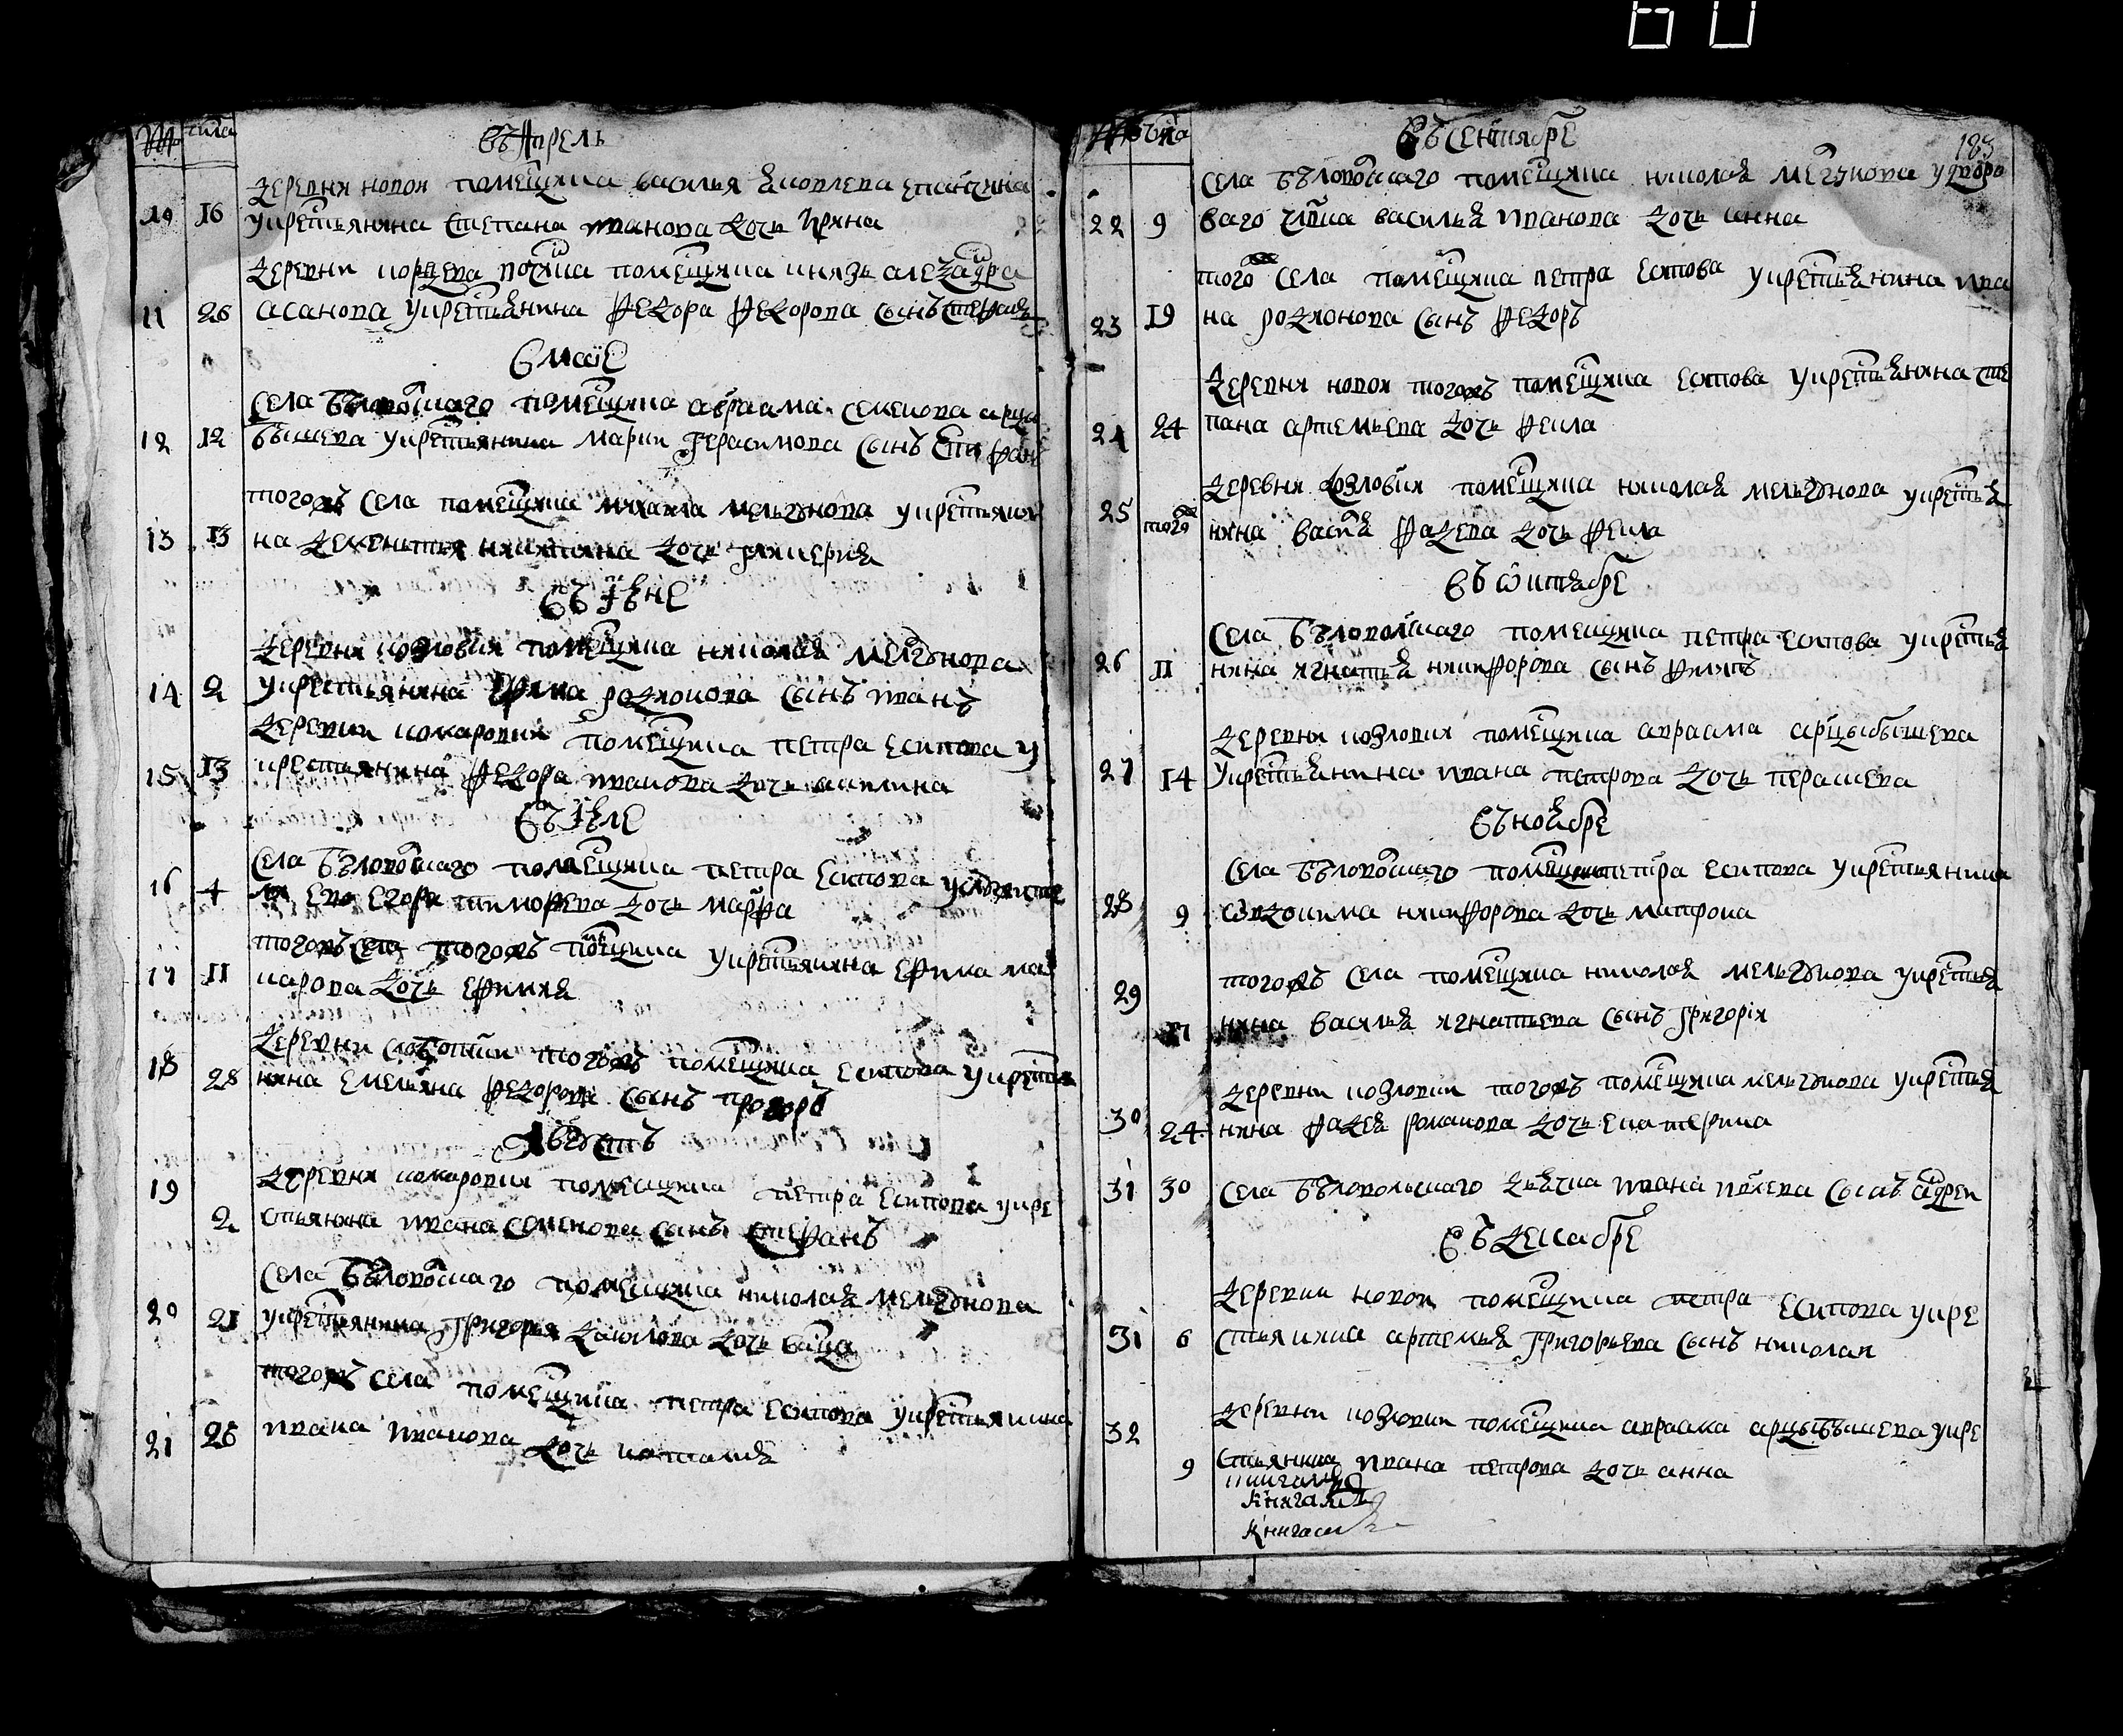 60
№ числа
въ Апрель
деревни новои помещика василья яковлева епанчина
10 16 у крестьянина степана иванова дочь ирина
деревни помещика князь александра
11 26 асанова у крестьянина федора федорова сынъ
в маiе
села беловолскаго помещика авраама семенова арцы
12 12 бышева у крестьянина марки герасимова сынъ
тогожъ села помещика михаила мельгунова у крестьяни
13 13 на дементья никитина дочь гликерия
въ iюне
деревни козловки помещика николая мелгунова
14 2 у крестьянина ефима родионова сынъ иванъ
деревни комаровки помещика петра есипова у
15 13 крестьянина федора иванова дочь акилина
въ iюле
села беловолскаго помещика петра есипова
16 4 ля ево егора тимофева дочь марфа
тогожъ села тогожъ помещика у крестьянина ефима ма
17 11 карова дочь ефимия
деревни тогожъ помещика есипова у крестья
18 28 нина емельяна федорова сынъ
Августъ
19 деревни комаровки помещика петра есипова у кре
2 стьянина ивана семенова сынъ стефанъ
села беловолскаго помещика николая мельгунова
20 21 у крестьянина григорья данилова дочь
тогожъ села помещика петра есипова у крестьянина
21 26 ивана иванова дочь наталия
№ числа
въ сентябре
183
села беловолскаго помещика николая мелгунова у дворо
22 9 ваго члвка василья иванова дочь анна
того села помещика петра есипова у крестьянина ива
23 19 на родионова сынъ федоръ
деревни новои тогожъ помещика есипова у крестьянина сте
24 24 пана артемьева дочь фекла
деревни козловки помещика николая мельгунова у крестья
25 того нина василья фадева дочь фекла
въ октябре
села беловолскаго помещика петра есипова у крестья
26 11 нина игнатья никифорова сынъ
деревни козловки помещика авраама арцыбышева
27 14 у крестьянина ивана петрова дочь парасцева
въ ноябре
села беловолскаго помещика петра есипова у крестьянина
28 9 евдокима никифорова дочь матрона
29 тогожъ села помещика николая мельгунова у крестья
нина василья игнатьева сынъ григорiи
деревни козловки тогожъ помещика мельгунова у крестья
30 24 нина фадея романова дочь екатерина
31 30 села беловольскаго дьячка ивана сынъ андреи
въ декабре
деревни новои помещика петра есипова у кре
31 6 стьянина артемья григорьева сынъ николаи
32 деревни козловки помещика авраама арцыбышева у кре
9 стьянина ивана петрова дочь анна